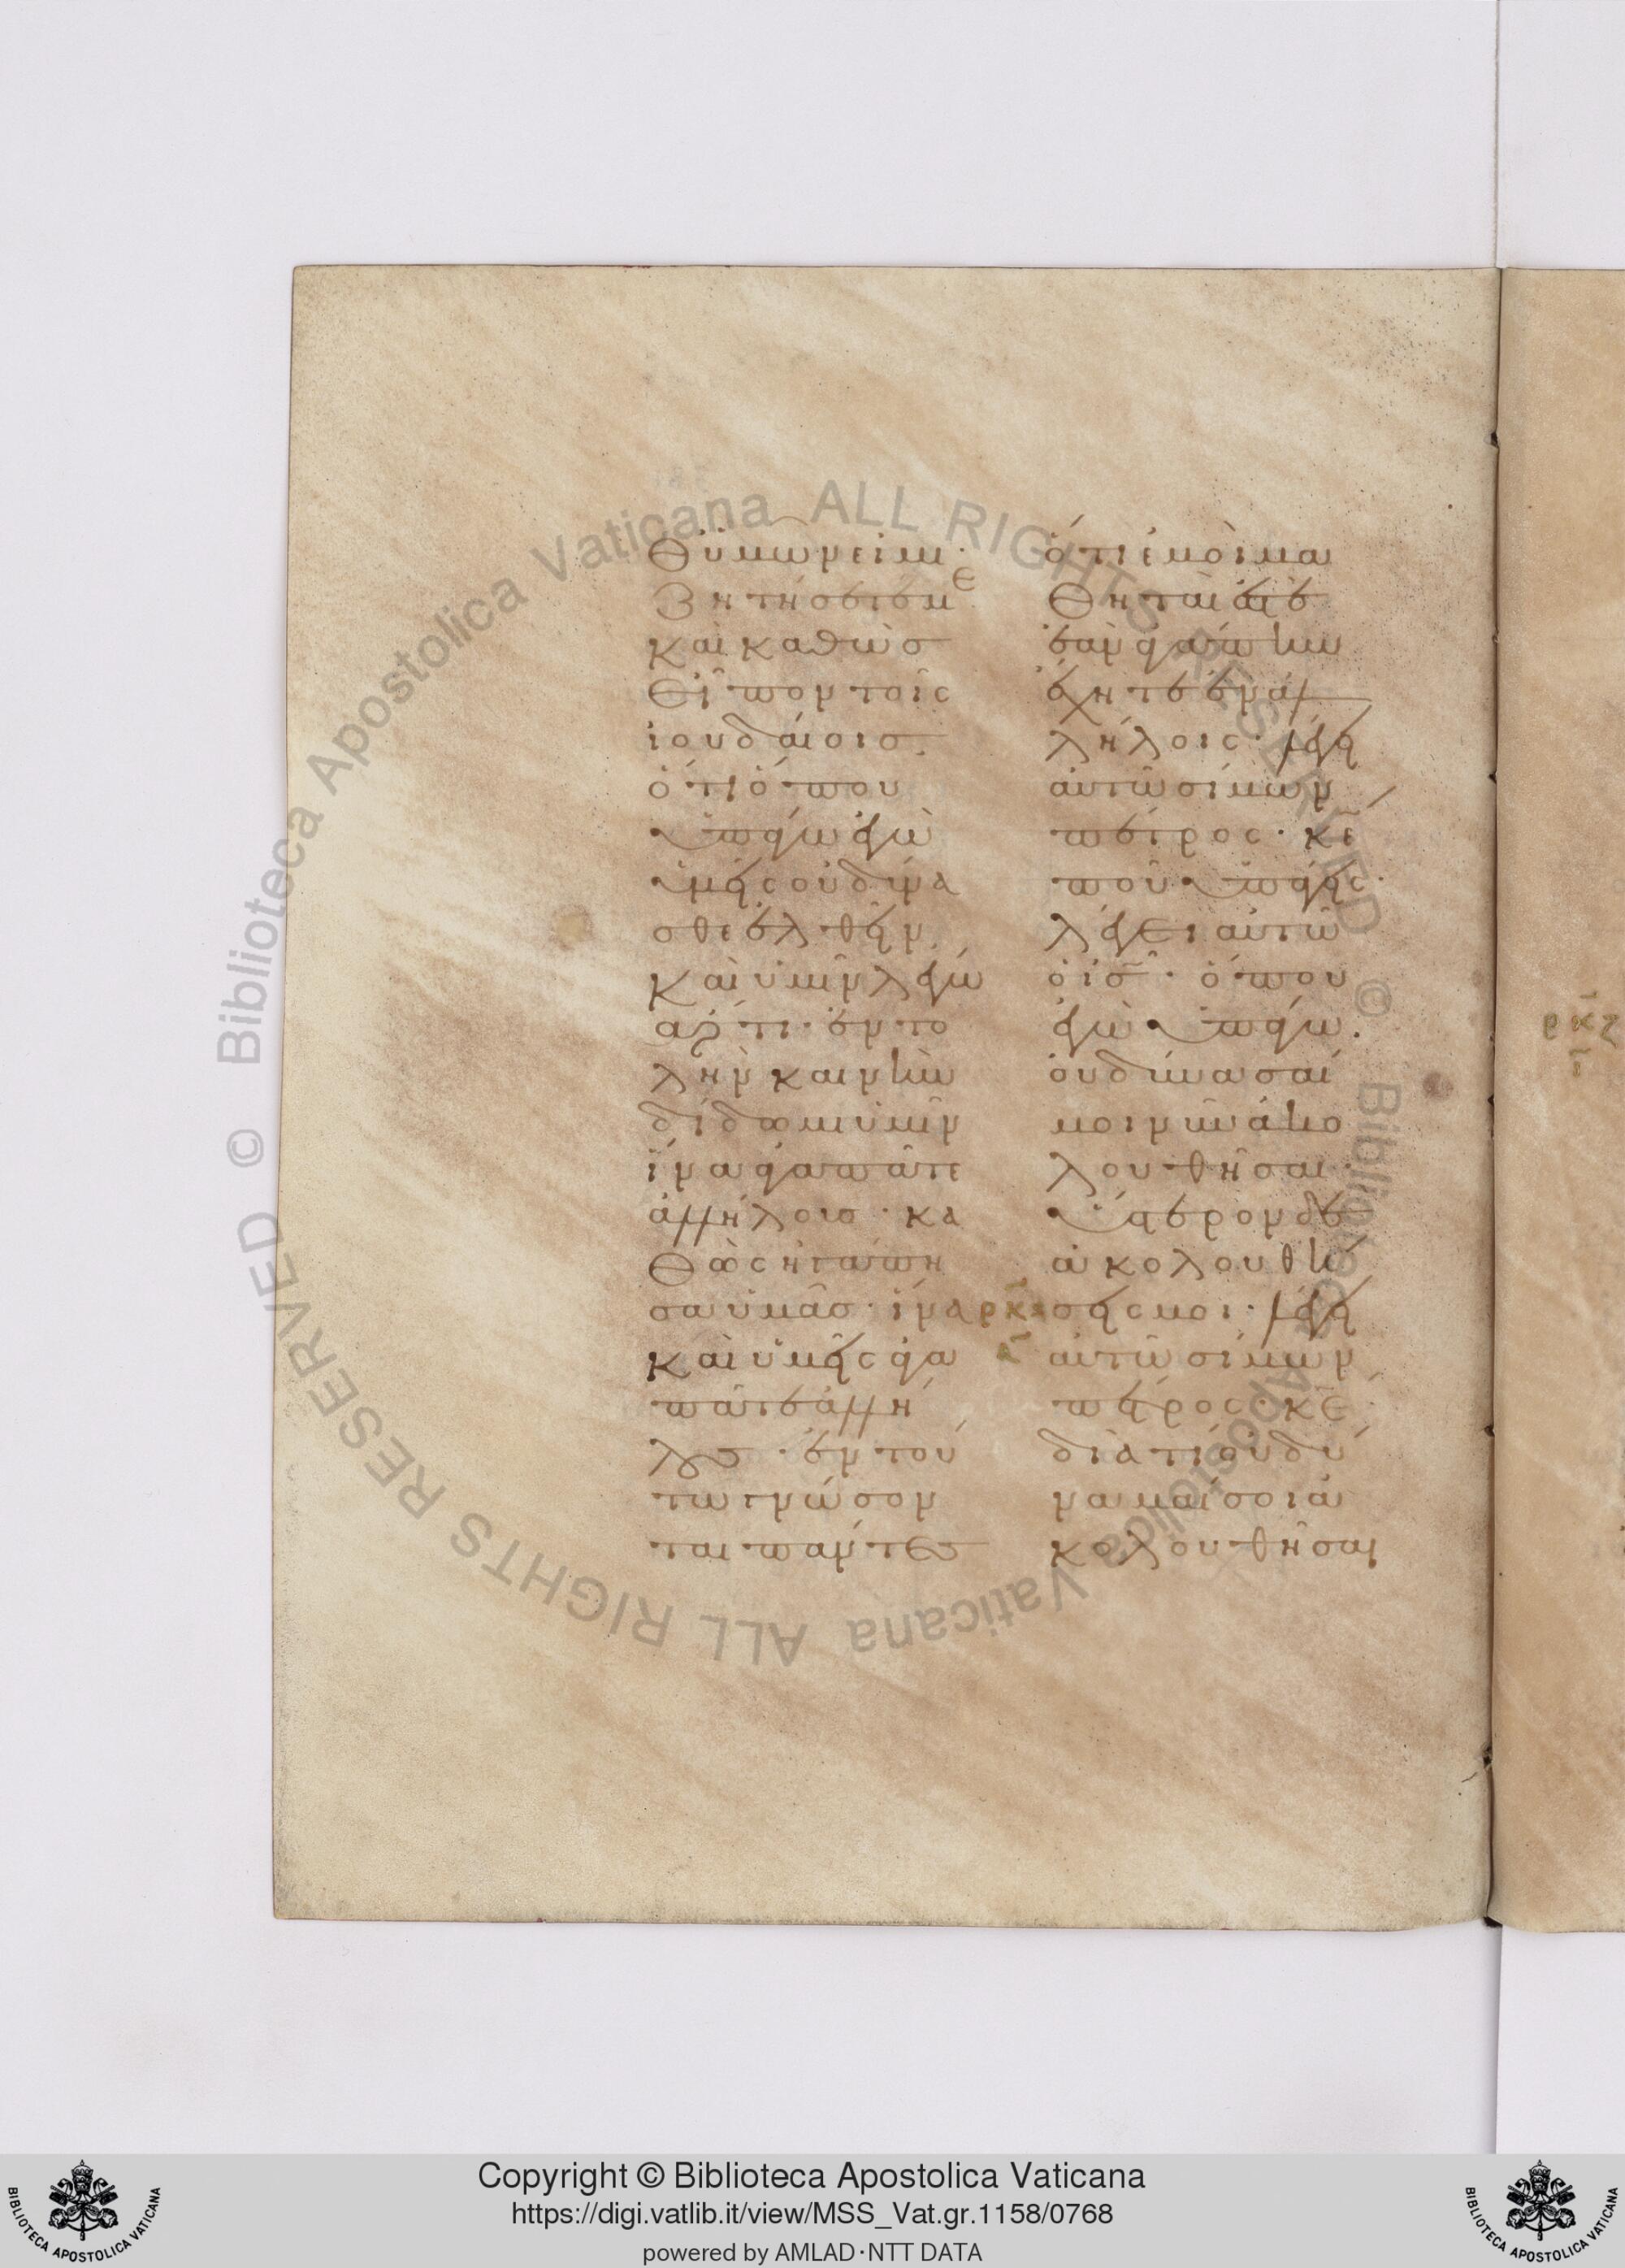 θ ὑμῶν εἰμι·
ζητήσετέ με
καὶ καθὼσ
εἶπον τοῖς
ἰουδαίοισ·
ὅτι ὅπου
ὑπάγω ἐγὼ
ὑμεῖς οὐ δύνα
σθε ἐλθεῖν
καὶ ὑμῖν λέγω
ἄρτι· ἐντο
λὴν καινὴν
δίδωμι ὑμῖν
ἵνα ἀγαπᾶτε
ἀλλήλοισ· κα
θὼς ἠγάπη
σα ὑμᾶσ· ἵνα
καὶ ὑμεῖς ἀγα
πᾶτε ἀλλή
λουσ· ἐν τού
τω γνώσον
ται πάντεσ
ὅτι ἐμοὶ μα
θηταί ἐστε
ἐὰν ἀγάπην
ἔχητε ἐν ἀλ
λήλοις· λέγει
αὐτῶ σίμων
πέτρος· κ̅ε̅
ποῦ ὑπάγεις·
λέγει αὐτῶ
ὁ ι̅σ̅· ὅπου
ἐγὼ ὑπάγω·
οὐ δύνασαί
μοι νῦν ἀκο
λουθῆσαι·
ὕστερον δὲ
ἀκολουθή
σεις μοι· λέγει
αὐτῶ σίμων
πέτρος· κ̅ε̅
διὰ τί οὐ δύ
ναμαί σοι ἀ
κολουθῆσαι
Copyright © Biblioteca Apostolica Vaticana
https://digi.vatlib.it/view/MSS_Vat.gr.1158/0768
powered by AMLAD·NTT DATA
BIBLIOTECA APOSTOLICA VATICANA
BIBLIOTECA APOSTOLICA VATICANA
© Biblioteca Apostolica Vaticana ALL RIGHTS RESERVED © Biblioteca Apostolica Vaticana ALL RIGHTS RESERVED